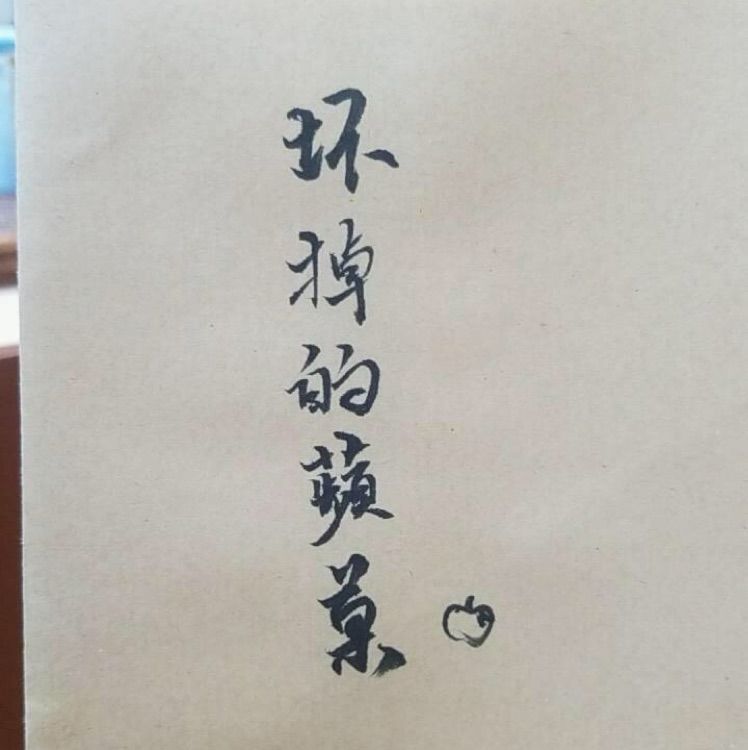 坏掉的蘋菓